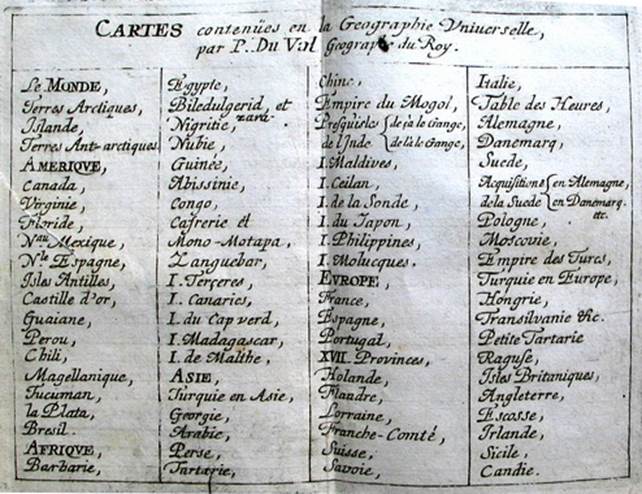 CARTES contenües en la Geographie Vniuerselle,
par P. Du Val Geographe du Roy.
Le MONDE,
Terres Arctiques,
Islande,
Terres Ant-arctiques
AMERIQVE,
Canada,
Virginie,
Floride,
Nau Mexique,
Nle Espagne,
Isles Antilles,
Castille d'or,
Guaiane,
Perou,
Chili,
Magellanique,
Tucuman,
la Plata,
Bresil.
AFRIQVE,
Barbarie,
Egypte,
Biledulgerid, et
zara.
Nigritie,
Nubie,
Guinée,
Abissinie,
Congo,
Cafrerie et
Mono-Motapa,
Zanguebar,
I. Terceres,
I. Canaries,
I. du Cap verd,
I. Madagascar,
I. de Malthe,
ASIE,
Turquie en Asie,
Georgie,
Arabie,
Perse,
Tartarie,
Chine,
Empire du Mogol,
Presqu'isles { de ça le Gange,
de l'Inde { de là le Gange,
I. Maldives,
I. Ceilan,
I. de la Sonde,
I. du Iapon,
I. Philippines,
I. Molucques.
EVROPE,
France,
Espagne,
Portugal,
XVII Provinces,
Holande,
Flandre,
Lorraine,
Franche-Comté,
Suisse,
Savoie,
Italie,
Table des Heures,
Alemagne,
Danemarq,
Suede,
Acquisitions { en Alemagne,
de la Suede { en Danemarq.
etc.
Pologne,
Moscovie,
Empire des Turcs,
Turquie en Europe,
Hongrie,
Transilvanie &c.
Petite Tartarie
Raguse,
Isles Britaniques,
Angleterre,
Escosse,
Irlande,
Sicile,
Candie.